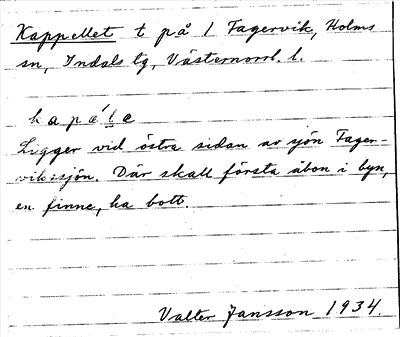 Kappellet t på 1 Fagervik, Holms
sn, Indals tg, Västernorrl. l.
kapálͅe
Ligger vid östra sidan av sjön Fager-
vikssjön. Där skall första åbon i byn,
en finne, ha bott.
Valter Jansson 1934.